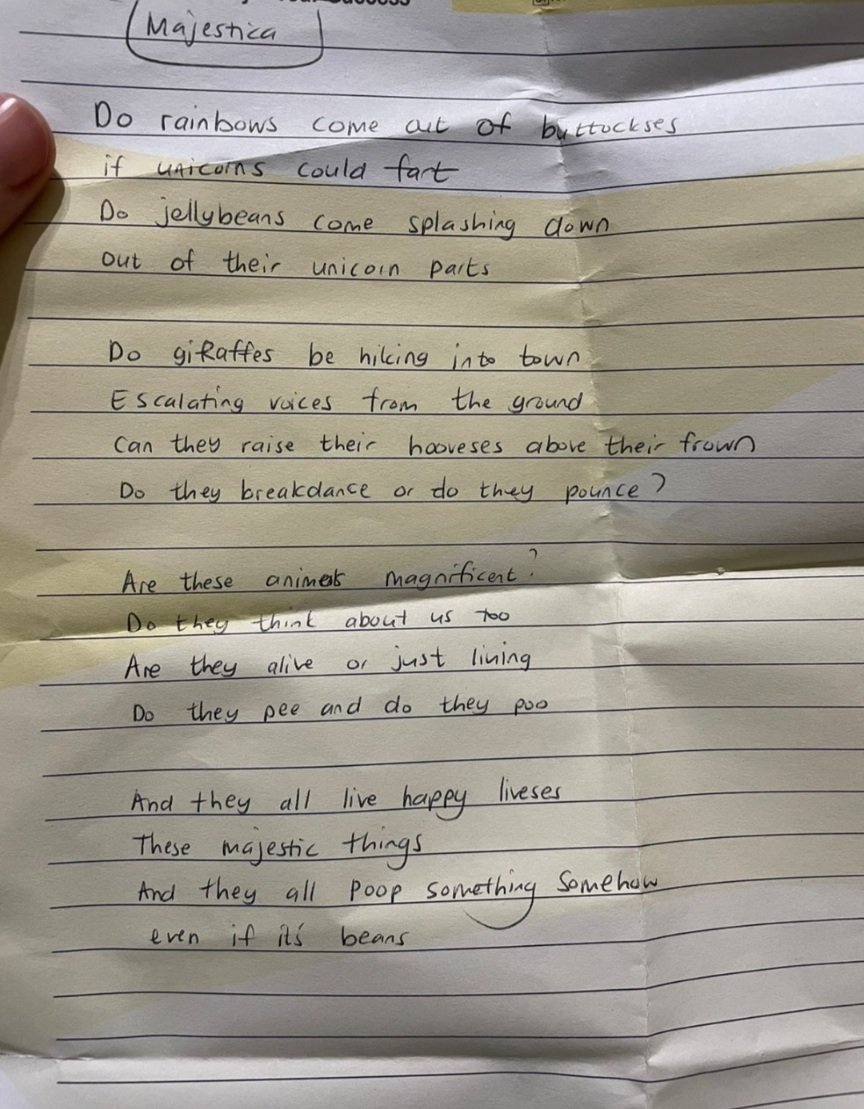 Majestica
Do rainbows come out of buttockses
if unicorns could fart
Do jellybeans come splashing down
out of their unicorn parts
Do giRaffes be hiking into town
Escalating voices from the ground
Can they raise their hooveses above their frown
Do they breakdance or do they pounce?
Are these animals magnificent?
Do they think about us too
Are they alive or just living
Do they pee and do they poo
And they all live happy liveses
These majestic things
And they all poop something somehow
even if it's beans